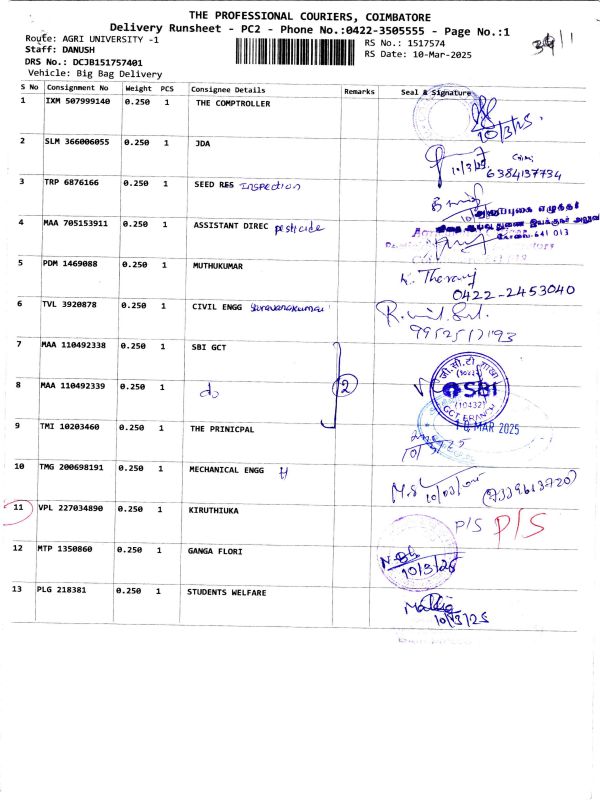 THE PROFESSIONAL COURIERS, COIMBATORE
Delivery Runsheet - PC2 - Phone No.:0422-3505555 - Page No.:1
Route: AGRI UNIVERSITY -1
RS No.: 1517574
Staff: DANUSH
RS Date: 10-Mar-2025
DRS No.: DCJB151757401
Vehicle: Big Bag Delivery
S No Consignment No Weight PCS Consignee Details Remarks Seal & Signature
1 IXM 507999140 0.250 1 THE COMPTROLLER 10/3/25.
2 SLM 366006055 0.250 1 JDA 10/3/25
6384137734
3 TRP 6876166 0.250 1 SEED RES Inspection
4 MAA 705153911 0.250 1 ASSISTANT DIREC pesticide
கோவை-641 013
5 PDM 1469088 0.250 1 MUTHUKUMAR
0422-2453040
6 TVL 3920878 0.250 1 CIVIL ENGG Saravanakumar
7 MAA 110492338 0.250 1 SBI GCT
8 MAA 110492339 0.250 1 do 2 SBI
(10432)
GCT BRANCH
9 TMI 10203460 0.250 1 THE PRINICPAL 10 MAR 2025
10 TMG 200698191 0.250 1 MECHANICAL ENGG M.S (7339613720)
11 VPL 227034890 0.250 1 KIRUTHIUKA P/S P/S
12 MTP 1350860 0.250 1 GANGA FLORI 10/3/25
13 PLG 218381 0.250 1 STUDENTS WELFARE
10/3/25